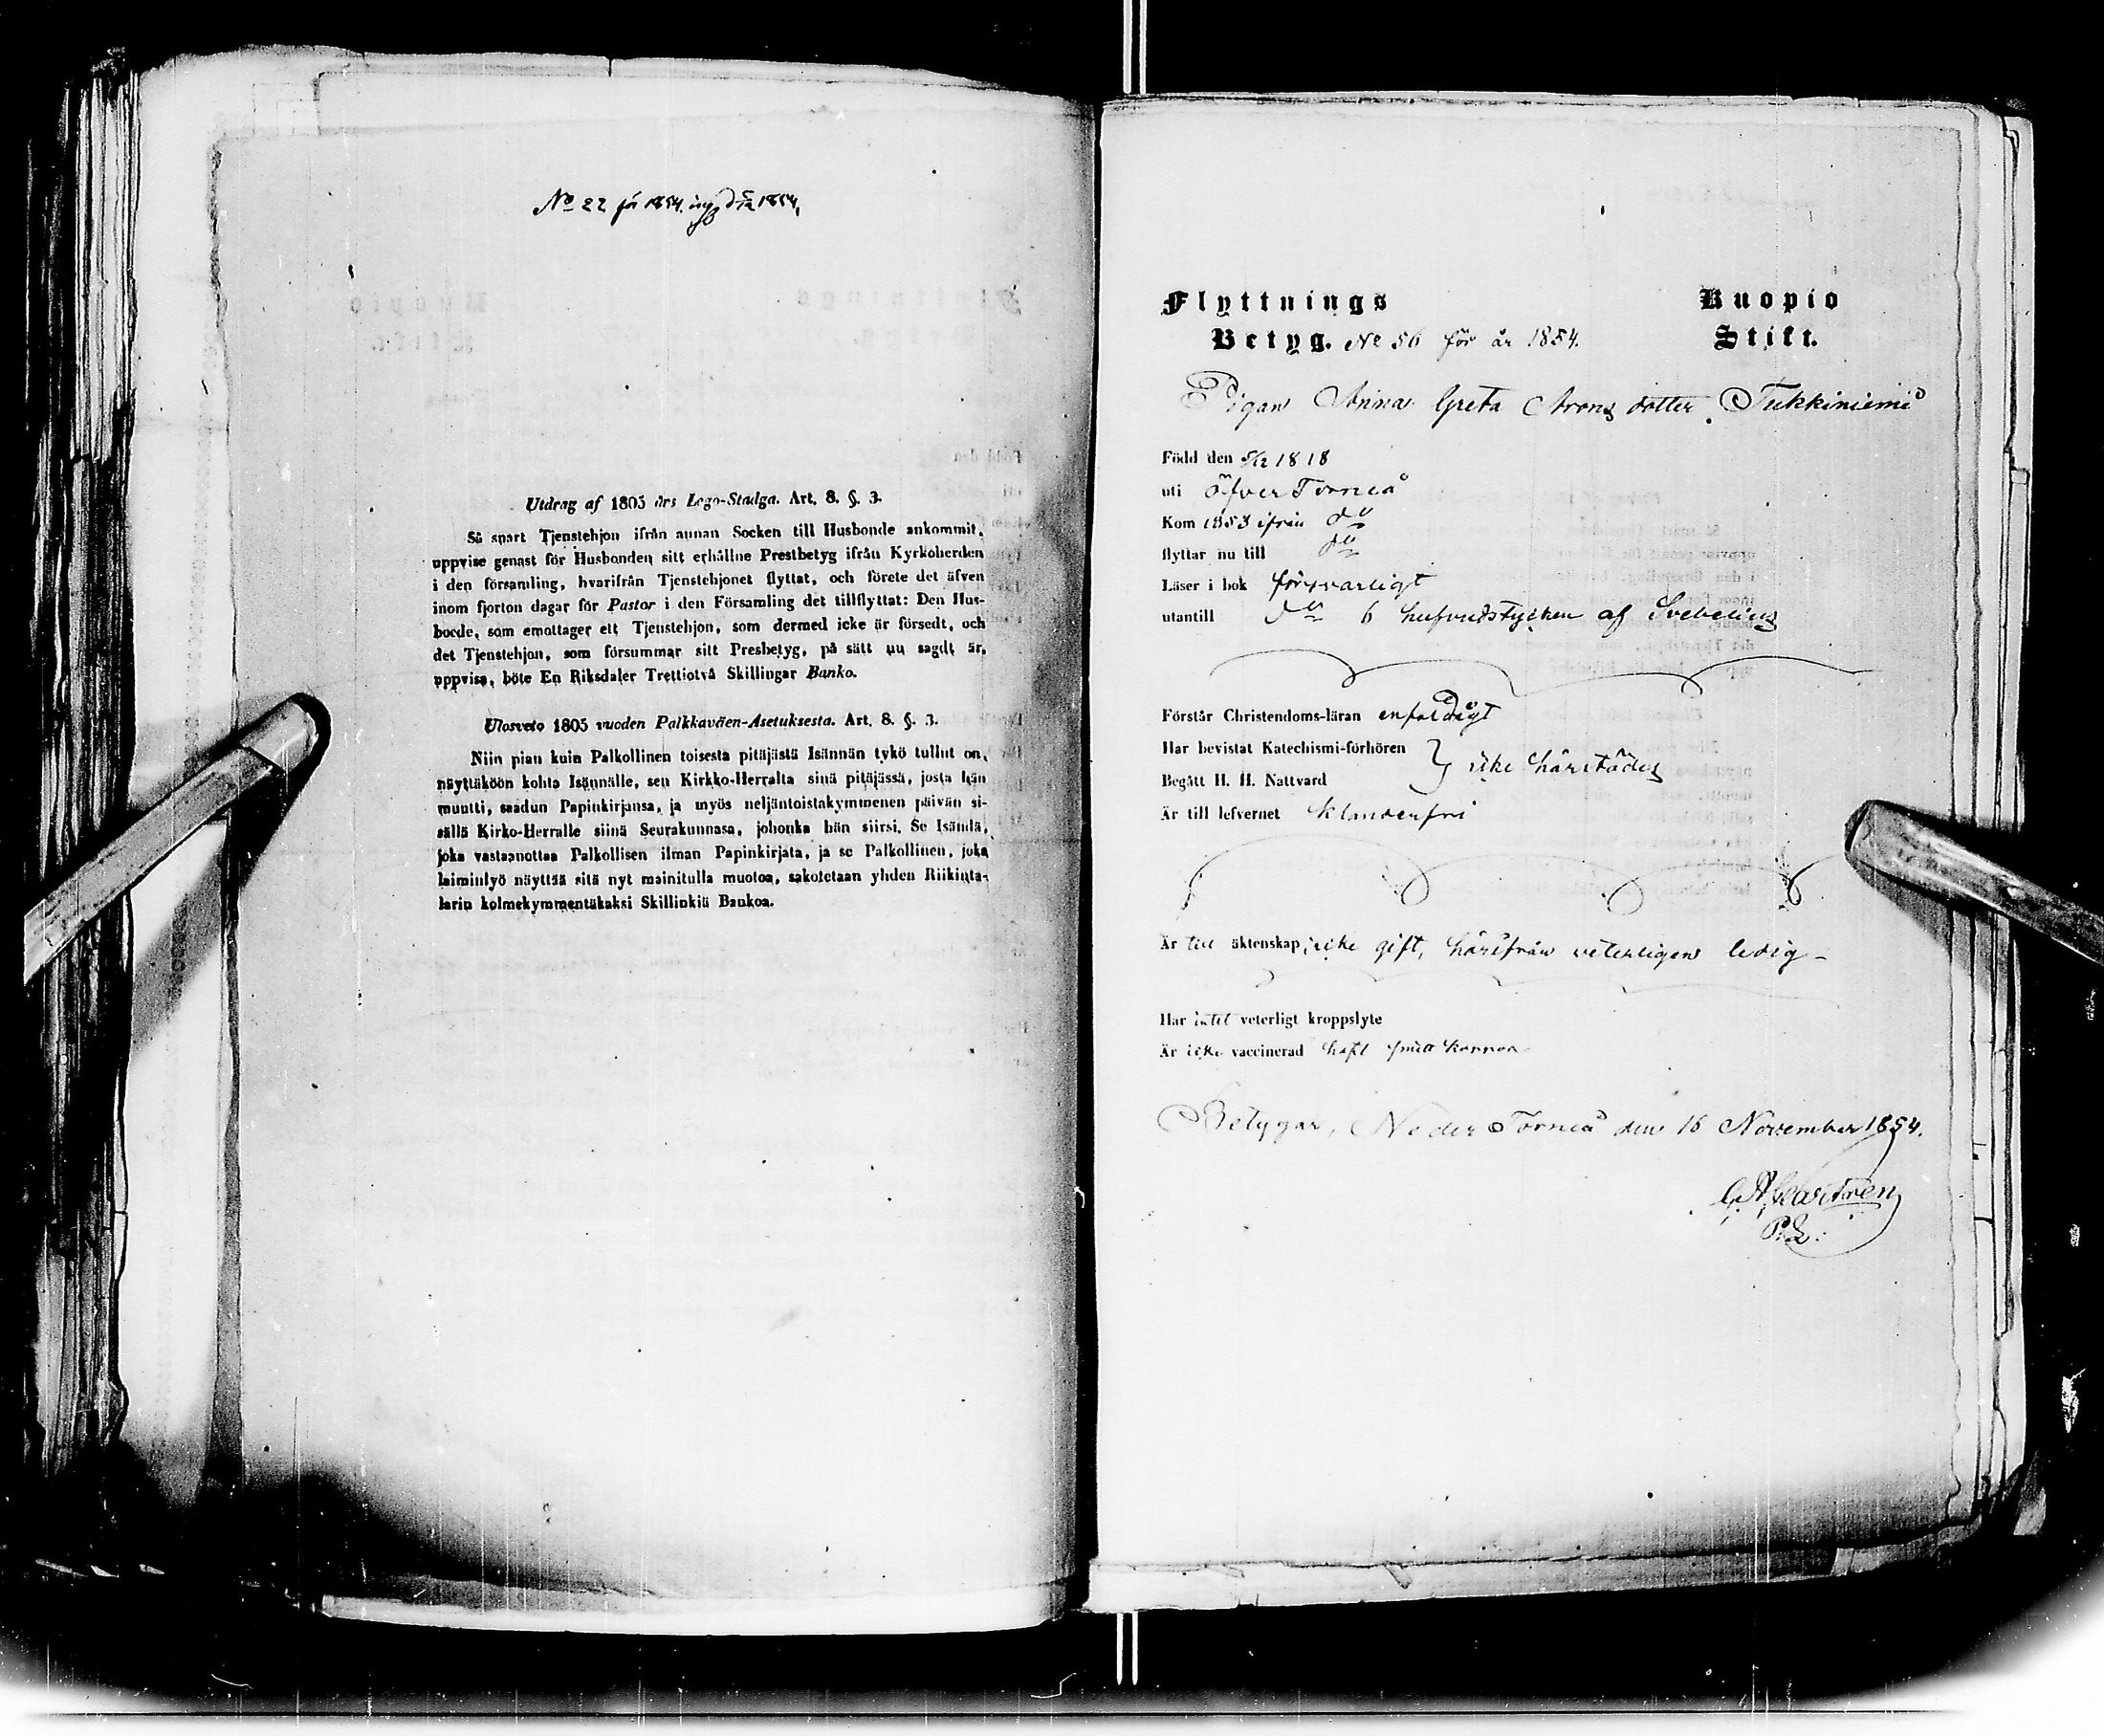 No 22 för 1854.
Utdrag af 1805 års Lego-Stadga. Art. 8. §. 3.
Så snart Tjenstehjon ifrån annan Socken till Husbonde ankommit,
uppvise genast för Husbonden sitt erhållne Prestbetyg ifrån Kyrkoherden
i den församling, hvarifrån Tjenstehjonet flyttat, och förete det äfven
inom fjorton dagar för Pastor i den Församling det tillflyttat: Den Hus-
bonde, som emottager ett Tjenstehjon, som dermed icke är försedt, och
det Tjenstehjon, som försummar sitt Presbetyg, på sätt nu sagdt är,
uppvisa, böte En Riksdaler Trettiotvå Skillingar Banko.
Ulosveto 1805 vuoden Palkkaväen-Asetuksesta. Art. 8. §. 3.
Niin pian kuin Palkollinen toisesta pitäjästä Isännän tykö tullut on,
näyttäköön kohta Isännälle, sen Kirkko-Herralta sinä pitäjässä, josta hän
muutti, saadun Papinkirjansa, ja myös neljäntoistakymmenen päivän si-
sällä Kirko-Herralle siinä Seurakunnasa, johonka hän siirsi. Se Isäntä,
joka vastaanottaa Palkollisen ilman Papinkirjata, ja se Palkollinen, joka
laiminlyö näyttää sitä nyt mainitulla muotoa, sakotetaan yhden Riikinta-
larin kolmekymmentäkaksi Skillinkiä Bankoa.
Flyttnings Kuopio
Betyg. No 56 för år 1854. Stift.
Pigan Anna Greta Arons dotter Tukkiniemi
Född den 5/12 1818
uti Öfver Torneå
Kom 1853 ifrån do
flyttar nu till do
Läser i bok försvarligt
utantill do 6 hufvudstycken af Svebelius
Förstår Christendoms-läran enfaldigt
Har bevistat Katechismi-förhören
Begått H. H. Nattvard } icke härstädes
Är till lefvernet klanderfri
Är till äktenskap icke gift, härifrån veterligen ledig
Har intet veterligt kroppslyte
Är icke vaccinerad haft smittkoppor
Betygar, Neder Torneå den 16 November 1854.